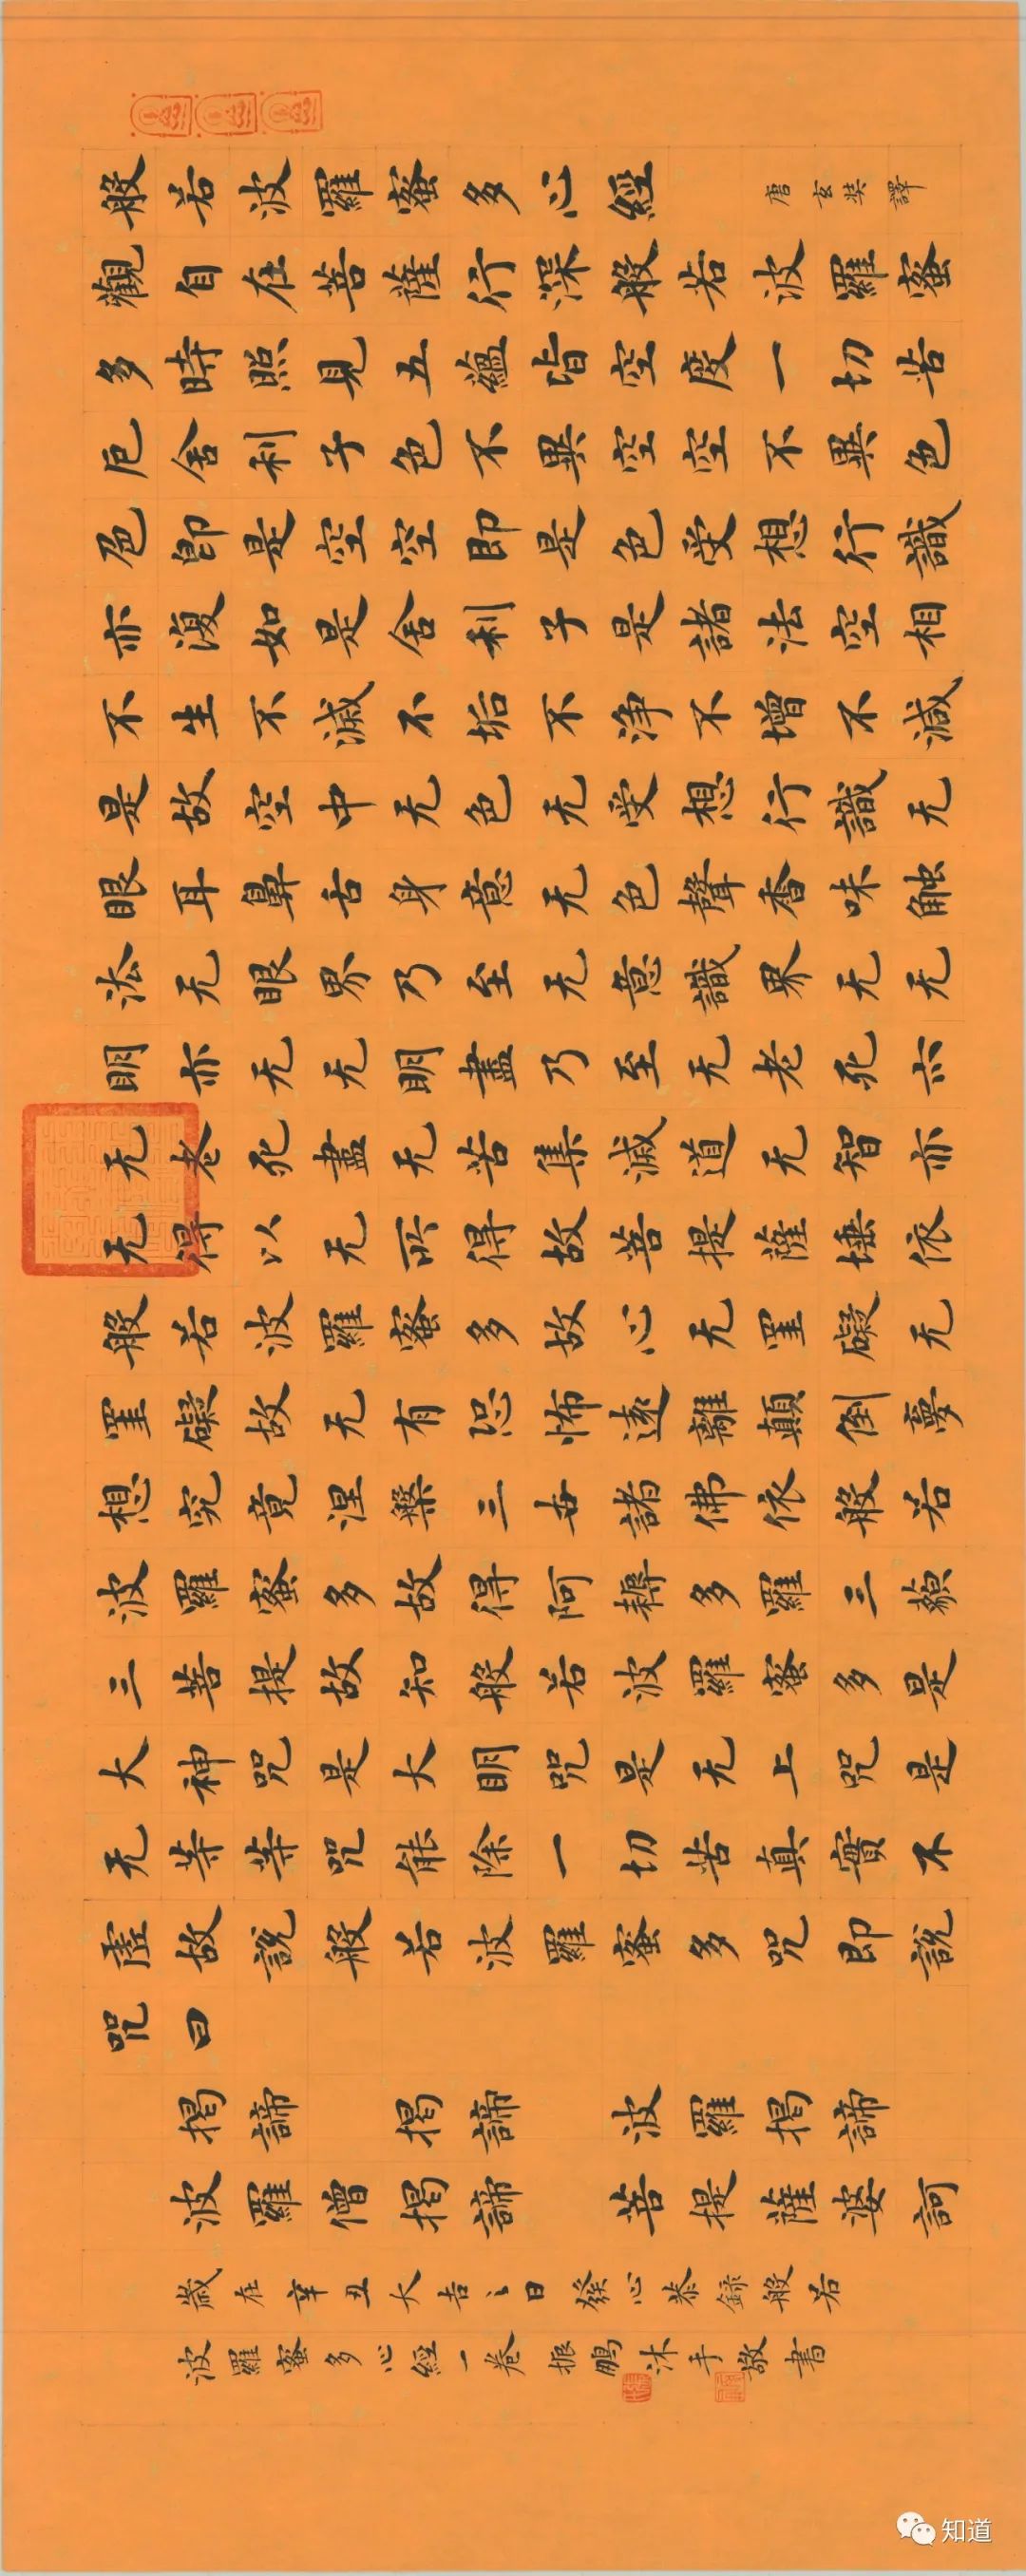 般若波羅蜜多心經 唐玄奘譯
觀自在菩薩行深般若波羅蜜
多時照見五蘊皆空度一切苦
厄舍利子色不異空空不異色
色即是空空即是色受想行識
亦復如是舍利子是諸法空相
不生不滅不垢不净不增不減
是故空中无色无受想行識无
眼耳鼻舌身意无色聲香味触
法无眼界乃至无意識界无无
明亦无无明盡乃至无老死亦
无老死盡无苦集滅道无智亦
无得以无所得故菩提薩埵依
般若波羅蜜多故心无罣礙无
罣礙故无有恐怖遠離顛倒夢
想究竟涅槃三世諸佛依般若
波羅蜜多故得阿耨多羅三藐
三菩提故知般若波羅蜜多是
大神咒是大明咒是无上咒是
无等等咒能除一切苦真實不
虛故說般若波羅蜜多咒即說
咒曰
揭諦 揭諦 波羅揭諦
波羅僧揭諦 菩提薩婆訶
歲在辛丑大吉之日發心恭錄般若
波羅蜜多心經一卷振鵬沐手敬書
知道